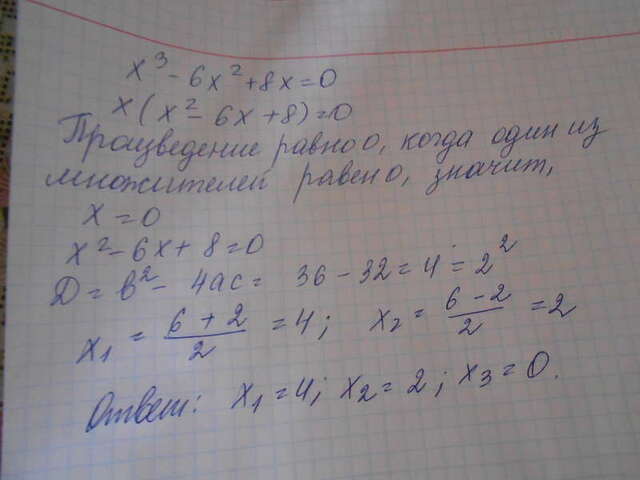 x³ - 6x² + 8x = 0
x(x² - 6x + 8) = 0
Произведение равно 0, когда один из
множителей равен 0, значит,
x = 0
x² - 6x + 8 = 0
D = b² - 4ac = 36 - 32 = 4 = 2²
x₁ = (6 + 2)/2 = 4; x₂ = (6 - 2)/2 = 2
Ответ: x₁ = 4; x₂ = 2; x₃ = 0.